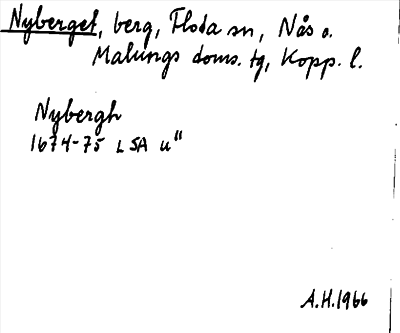 Nyberget, berg, Floda sn, Nås o.
Malungs doms. tg, Kopp. l.
Nybergh
1674-75 LSA u"
A.H.1966